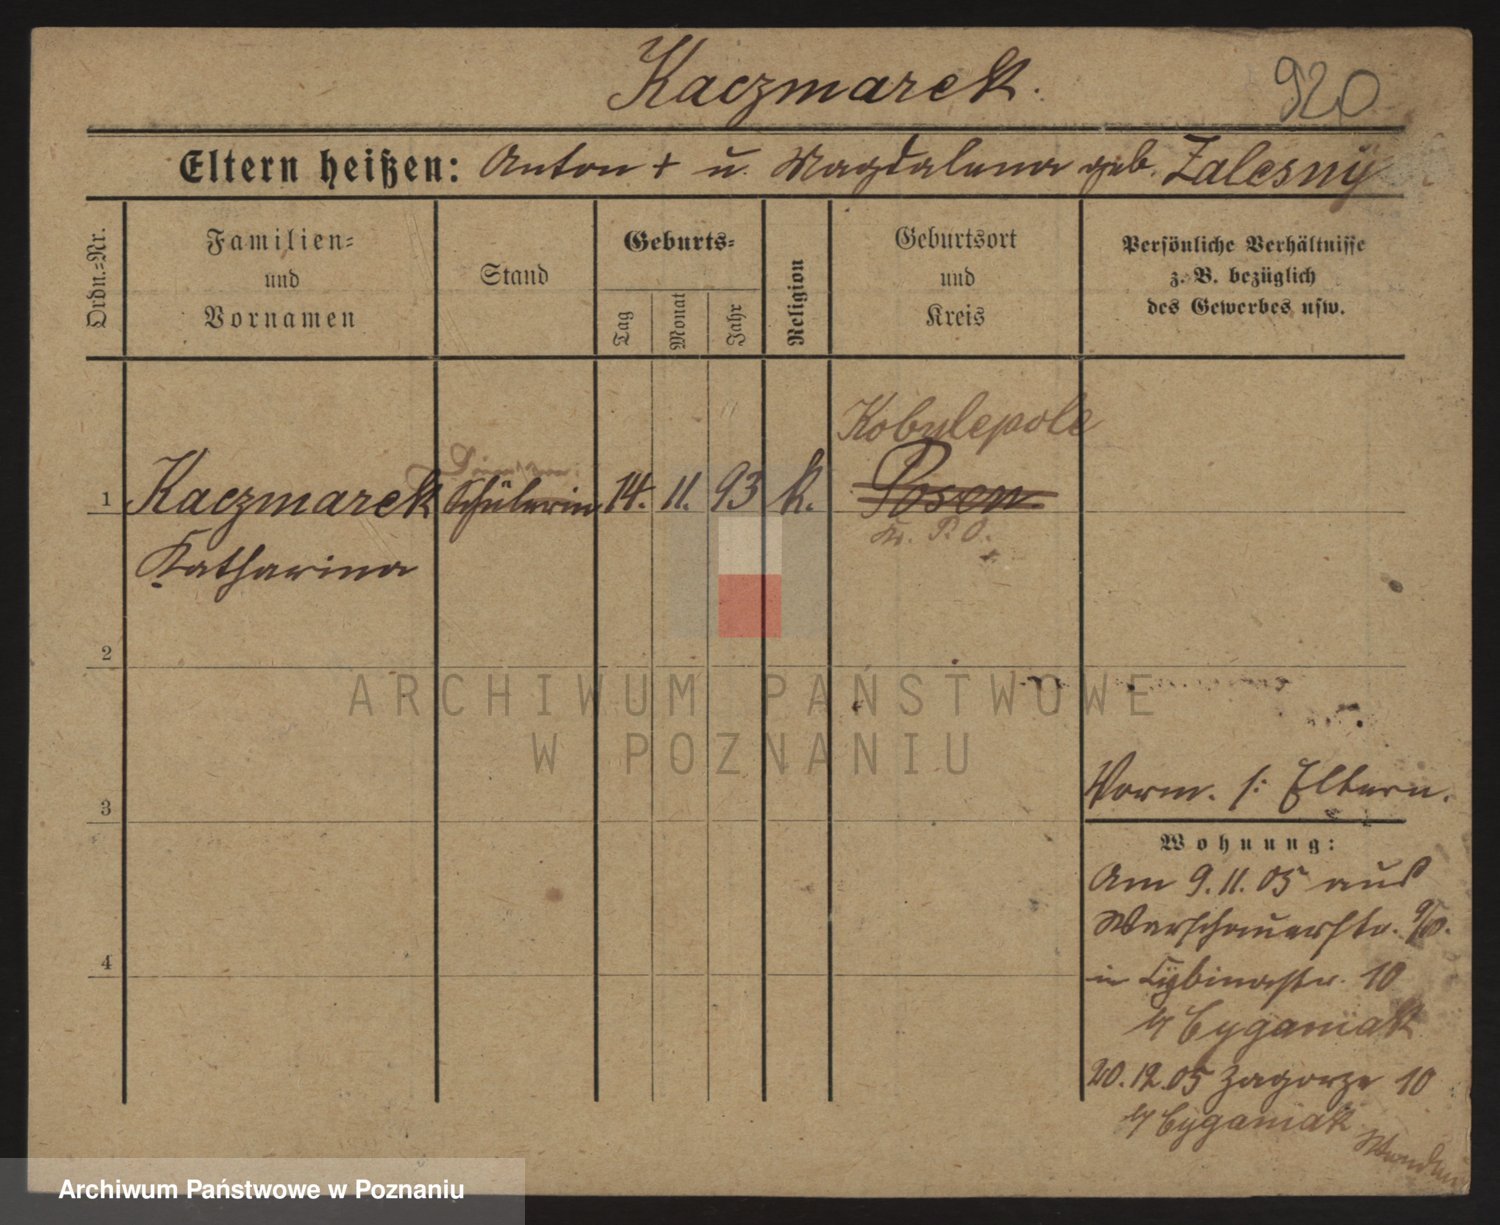 Kaczmarek.
920
Eltern heißen: Anton + u. Magdalena geb. Zalesny
Ordn.-Nr.
Familien- und Vornamen
Stand
Geburts-
Tag
Monat
Jahr
Religion
Geburtsort und Kreis
Persönliche Verhältnisse z. B. bezüglich des Gewerbes usw.
Kobylepole
1 Kaczmarek Schülerin 14. 11. 93 k. Posen
Kr. P. O.
Katharina
2
ARCHIWUM PAŃSTWOWE
W POZNANIU
Vorm. s: Eltern.
3
Wohnung:
Am 9.11.05 aus
Warschauerstr.
in Cybinastr. 10
4
b/ Cyganiak
20.12.05 Zagorze 10
b/ Cyganiak
Archiwum Państwowe w Poznaniu